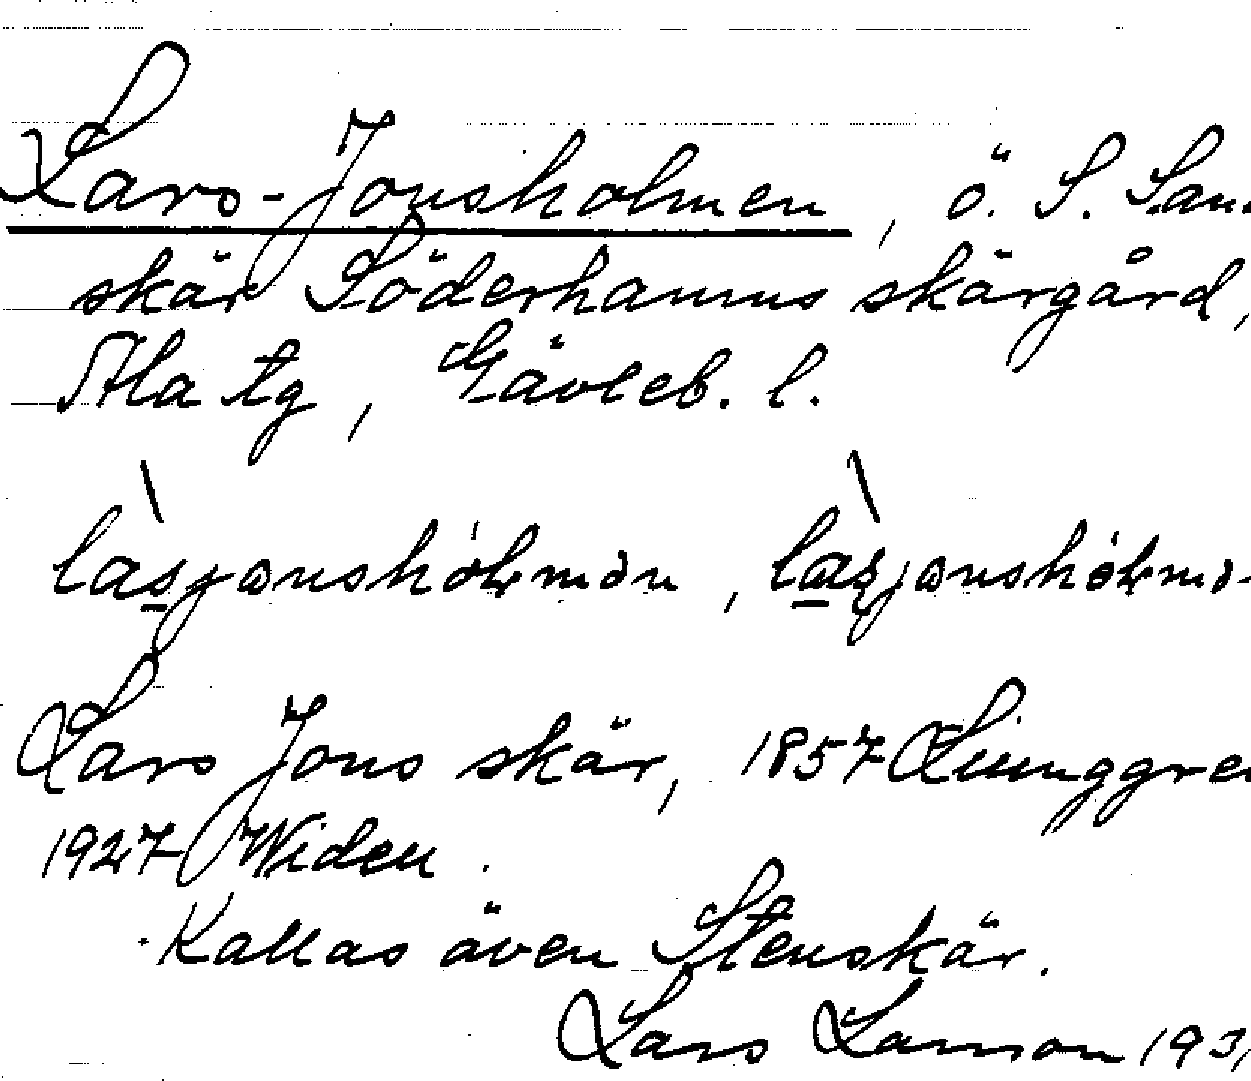 Lars-Jonsholmen, ö. S. San
skär Söderhamns skärgård,
Ala tg, Gävleb. l.
làsjonshólmön, làsjonshólmö-
Lars Jons skär, 1857 Ljunggren
1927 Widen.
Kallas även Stenskär.
Lars Larsson 193